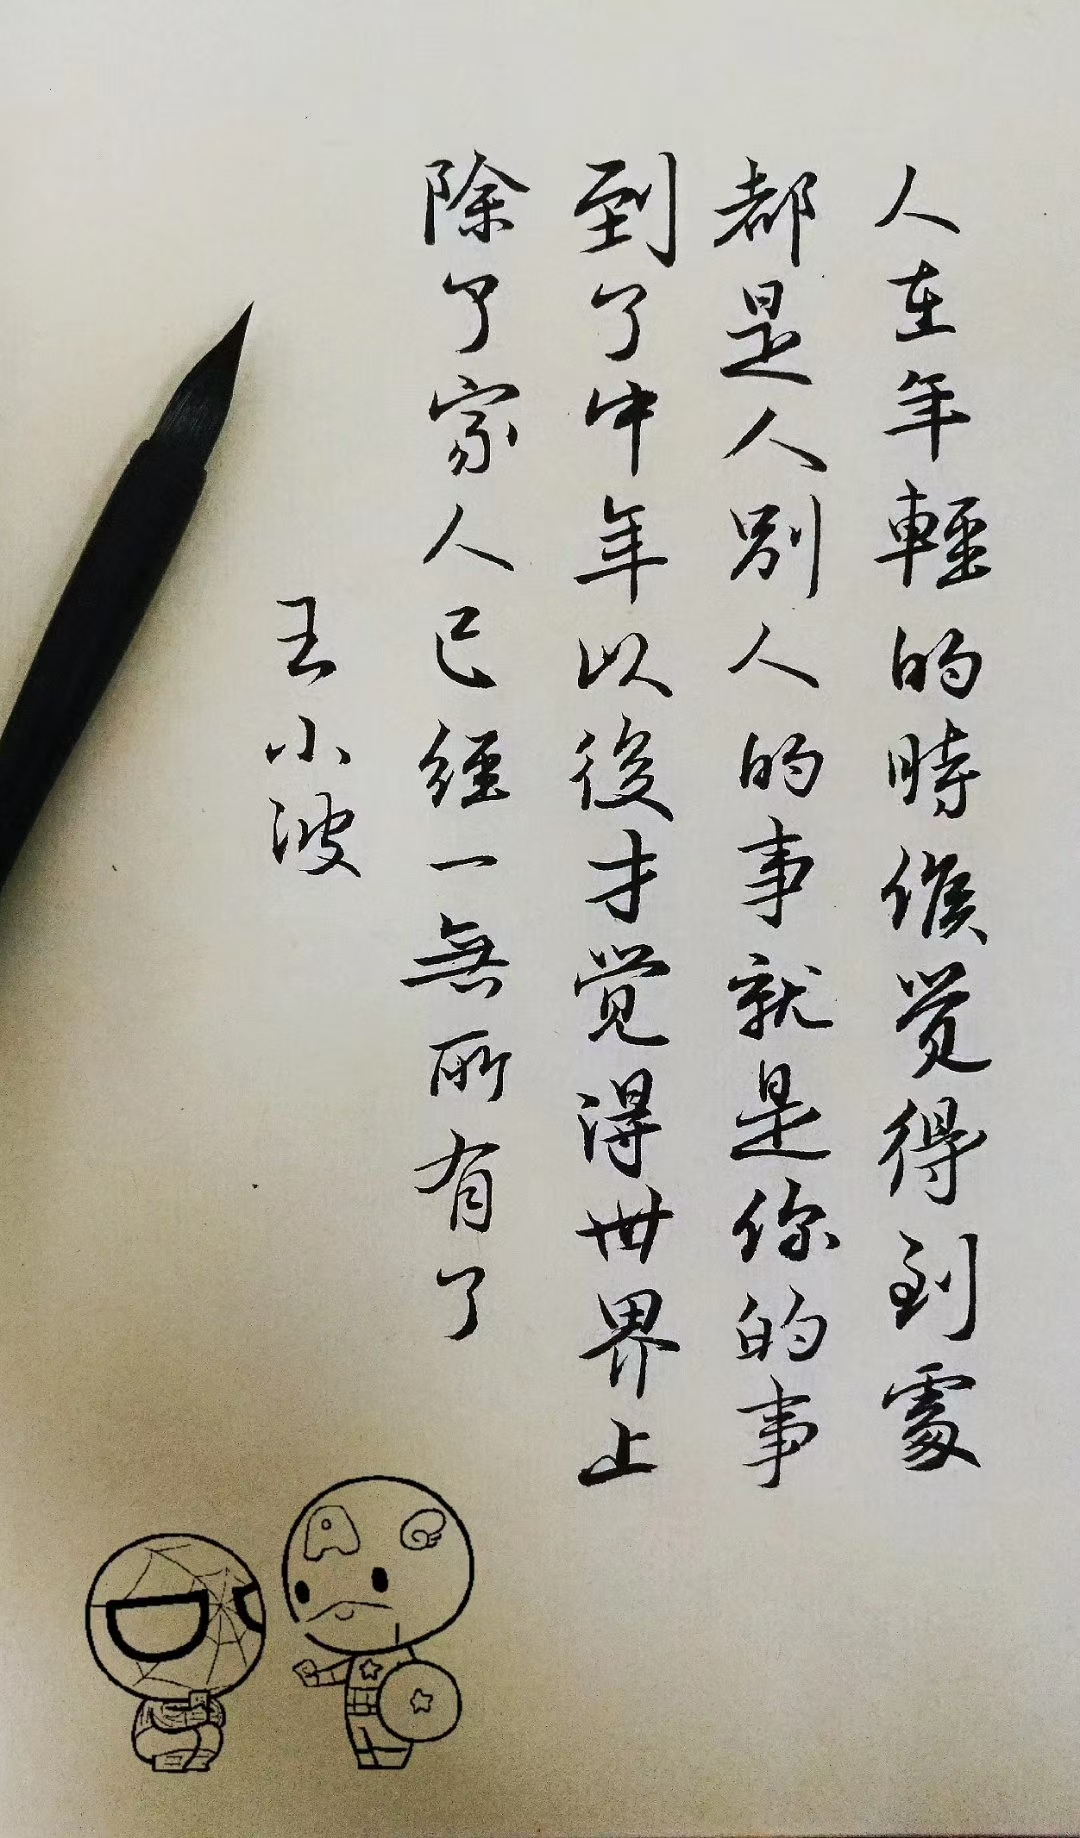 人在年輕的時候觉得到處
都是人別人的事就是你的事
到了中年以後才觉得世界上
除了家人已經一無所有了
王小波